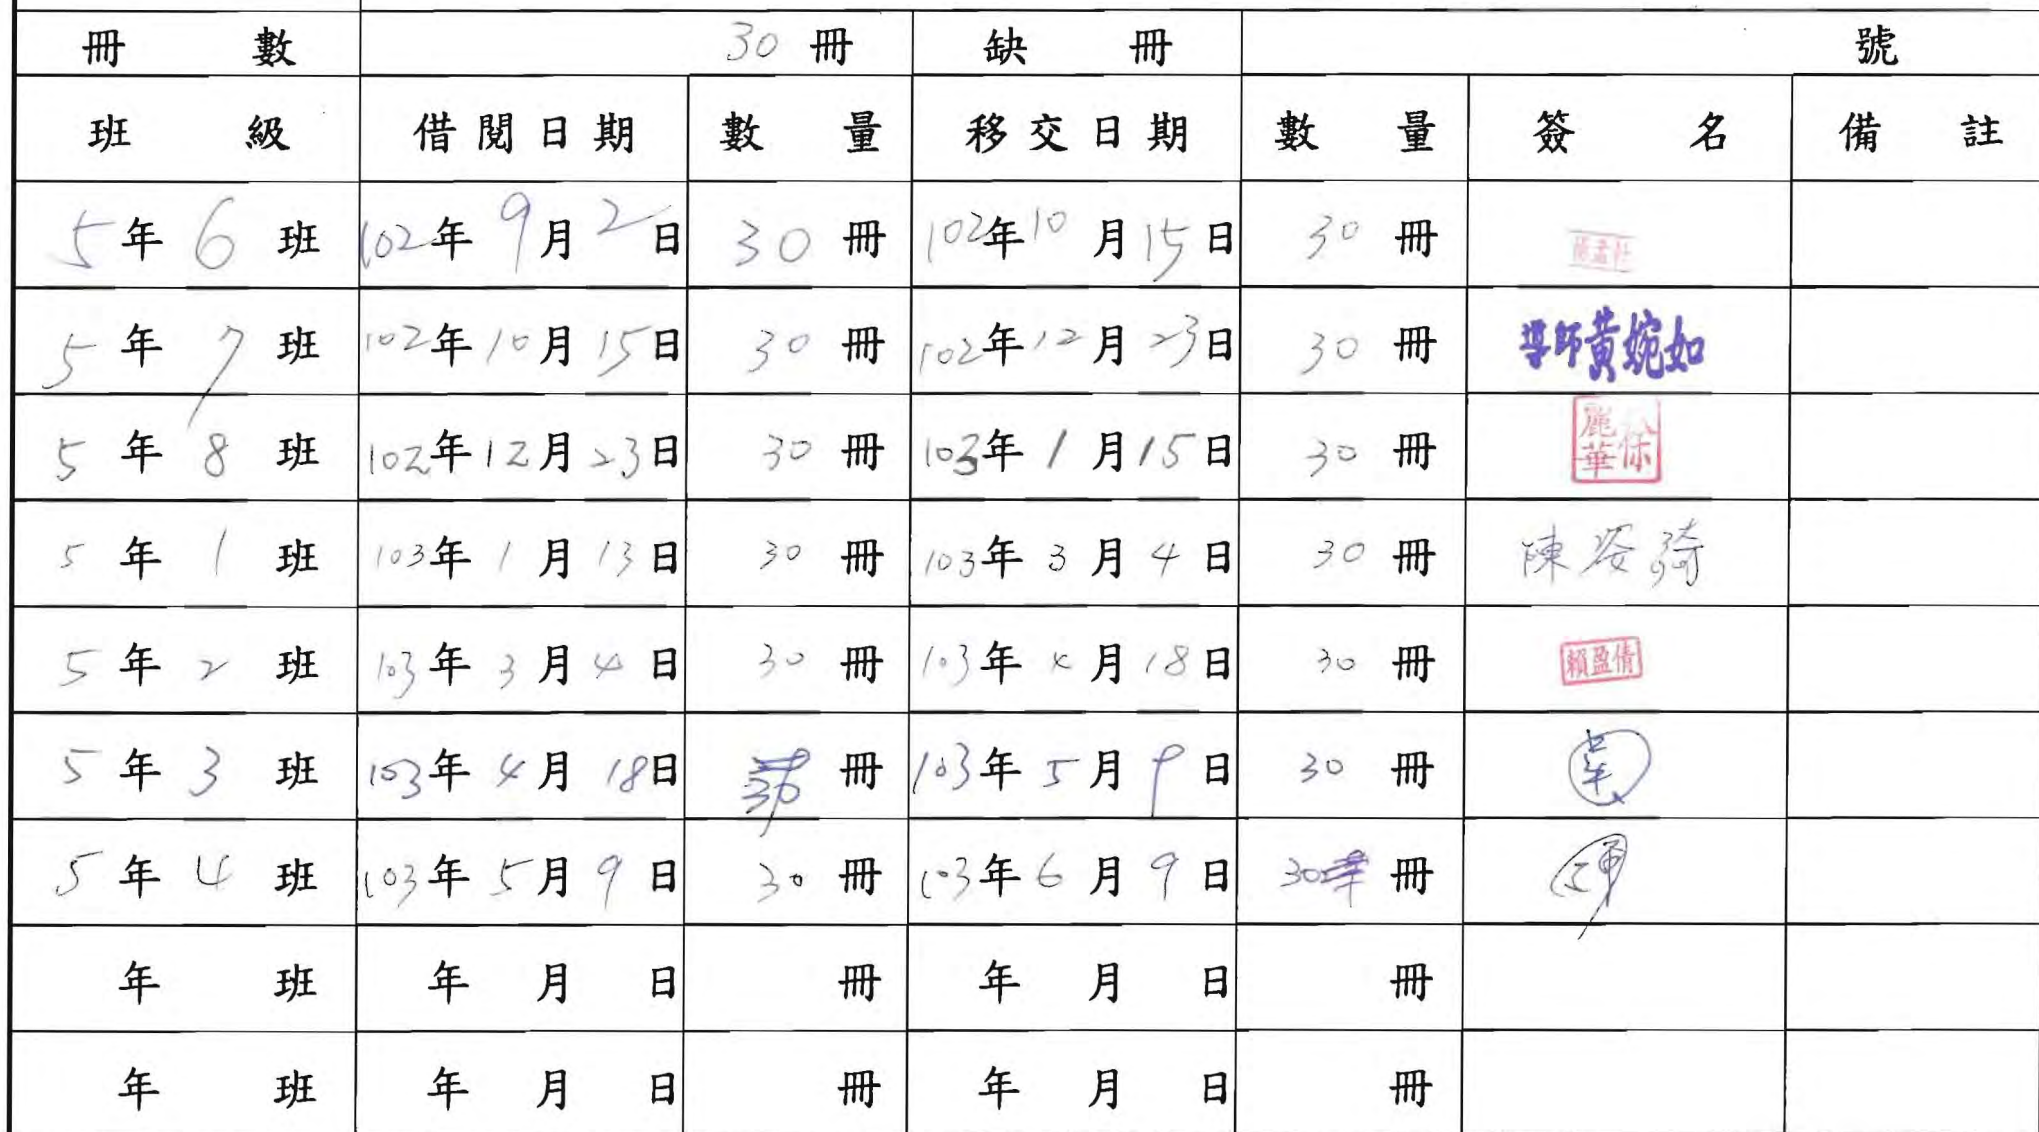 冊 數 30 冊 缺 冊 號
班 級 借閱日期 數 量 移交日期 數 量 簽 名 備 註
5年6班 102年9月2日 30冊 102年10月15日 30冊
5年7班 102年10月15日 30冊 102年12月23日 30冊 導師黃婉如
5年8班 102年12月23日 30冊 103年1月15日 30冊 徐麗華
5年1班 103年1月13日 30冊 103年3月4日 30冊 陳姿綺
5年2班 103年3月4日 30冊 103年4月18日 30冊 賴盈倩
5年3班 103年4月18日 30冊 103年5月9日 30冊
5年4班 103年5月9日 30冊 103年6月9日 30冊
年 班 年 月 日 冊 年 月 日 冊
年 班 年 月 日 冊 年 月 日 冊